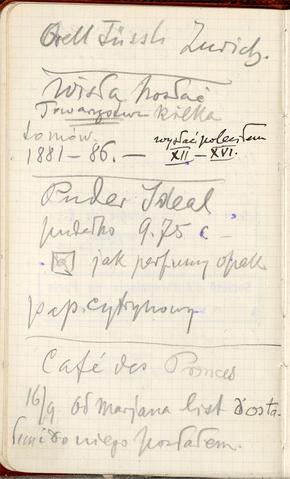 Orell Füssli Zurich.
Wisła posłać
Towarzystwu kilka
tomów
1881–86. – wysłać poleciłem
XII – XVI.
Puder Ideal
pudełko 9.75 c –
jak perfumy opak
pap. cytrynowy
Café des Princes
16/9 od Marjana list dosta-
łem i do niego posłałem.